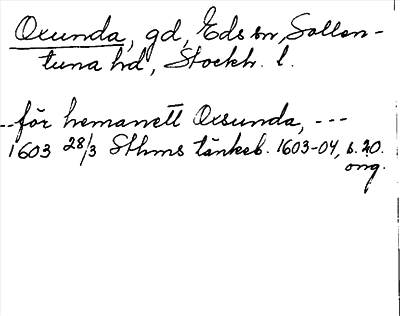 Oxunda, gd, Eds sn, Sollen-
tuna hd, Stockh. l.
--för hemanett Oxsunda, ---
1603 28/3 Sthms tänkeb. 1603-04, s. 20.
orig.